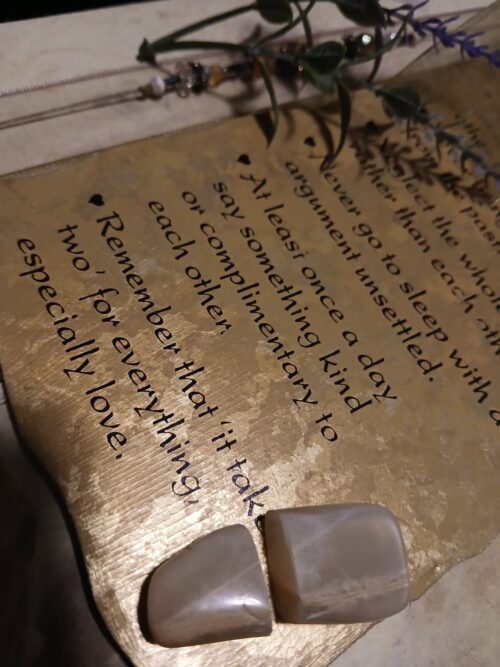 the past
the whol
than each oth
Never go to sleep with a
argument unsettled.
At least once a day
say something kind
or complimentary to
each other.
Remember that 'it tak
two' for everything,
especially love.